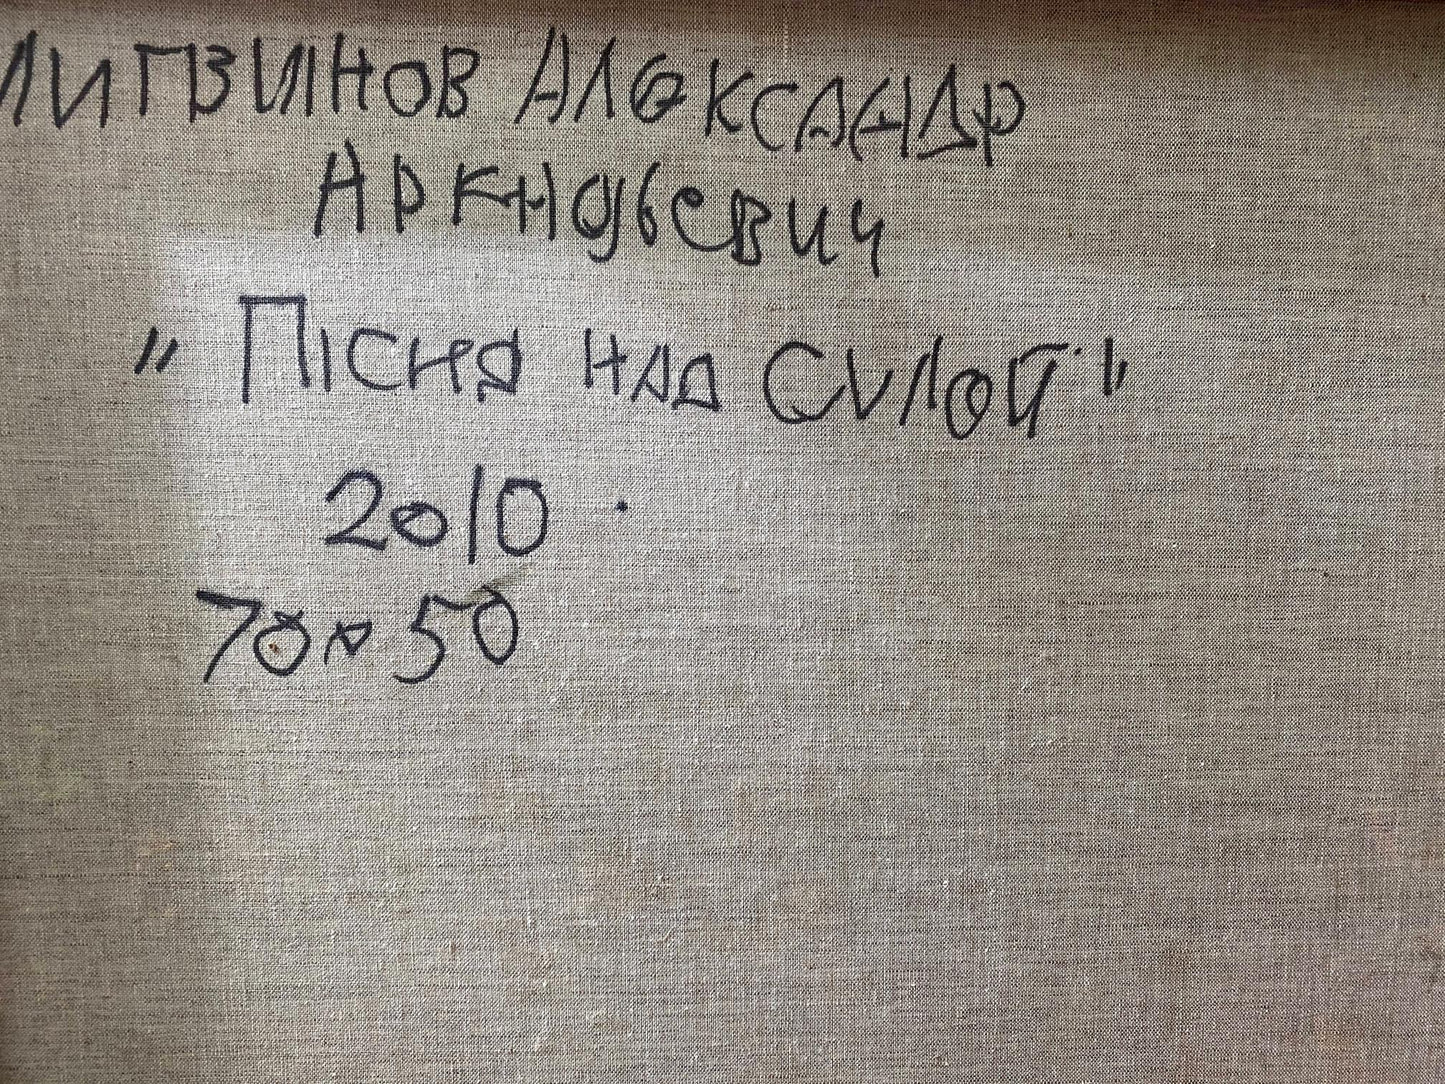 Литвинов Александр
Аркадьевич
"Пісня над Сулой"
2010.
70х50